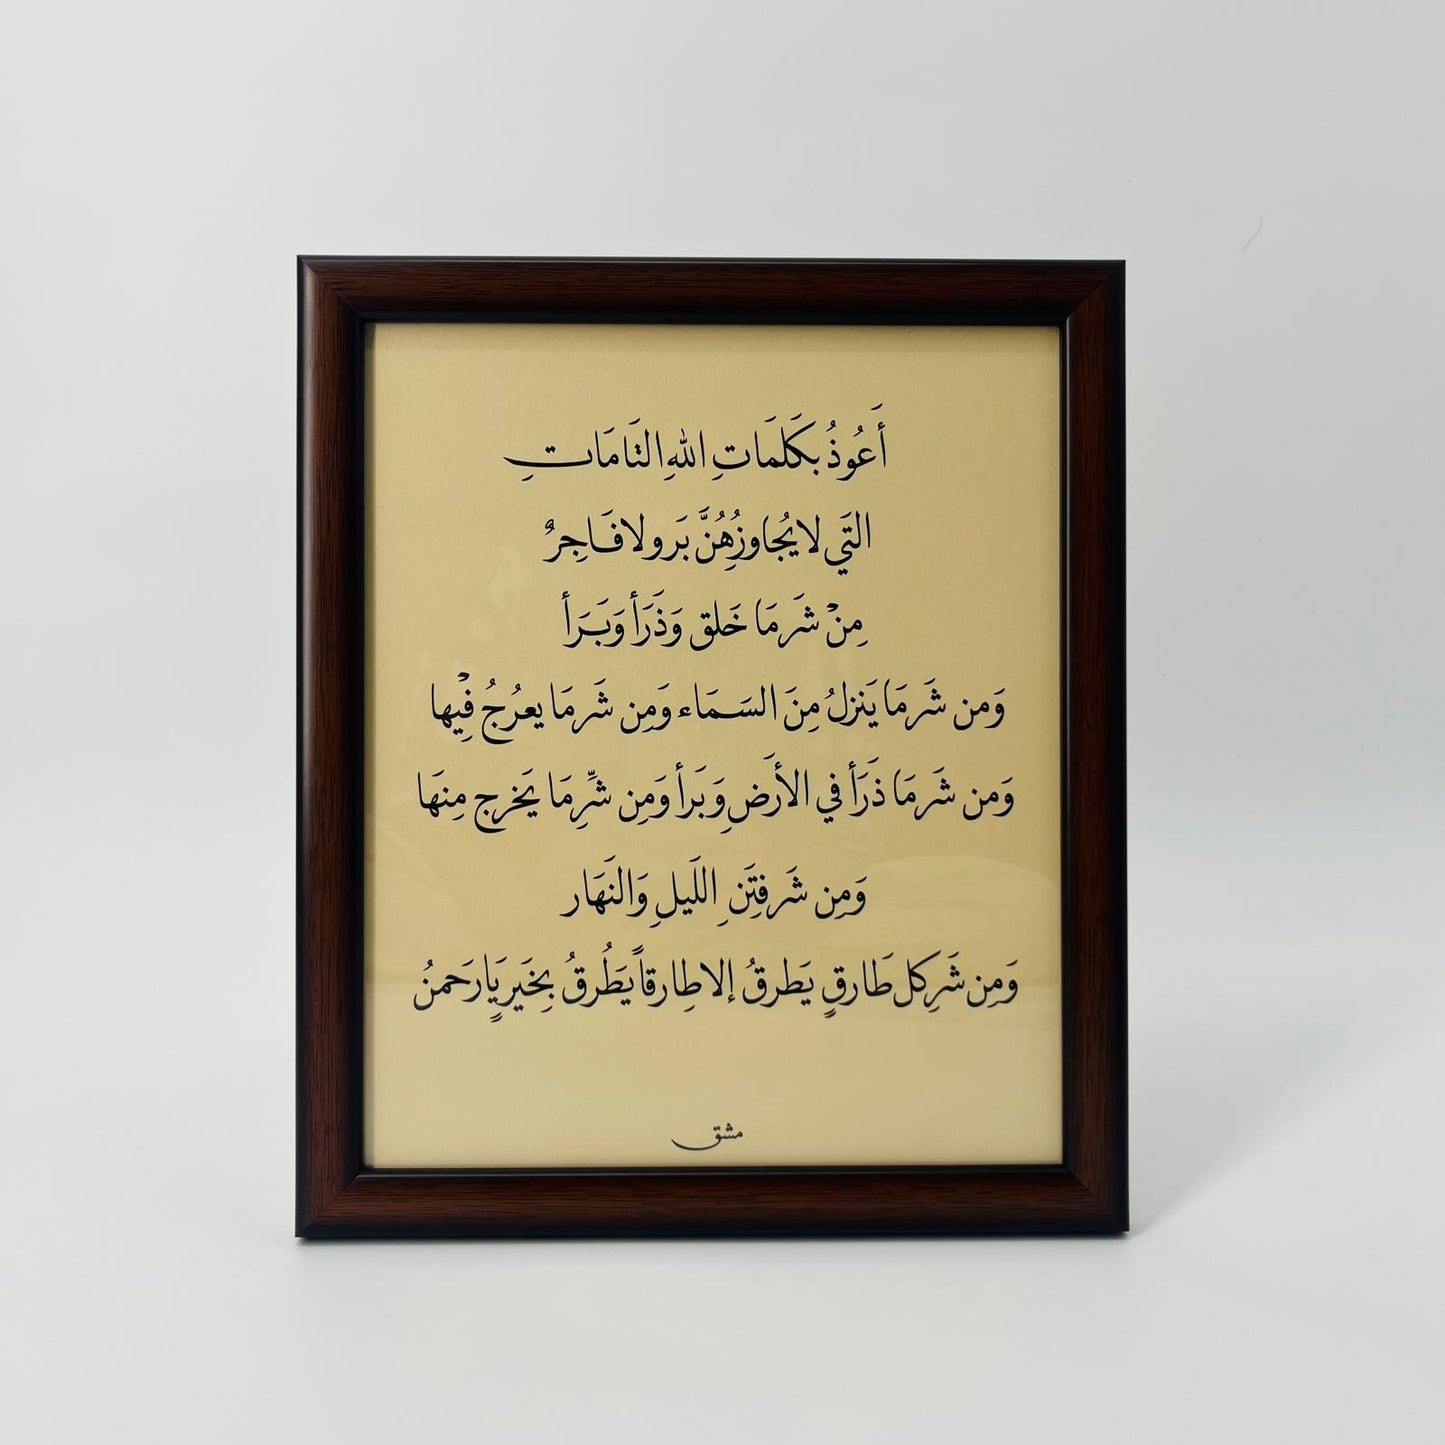 أَعُوذُ بكَلَمَاتِ اللهِ التَامَاتِ
التَي لا يُجاوزُهُنَّ بَر ولا فَاجِرٌ
مِنْ شَر مَا خَلق وَذَرَأ وَبَرَأ
وَمن شَر مَا يَنزلُ مِنَ السَمَاء وَمِن شَر مَا يعرُجُ فِيْها
وَمن شَر مَا ذَرَأ في الأرَضِ وَبَرأ وَمِن شَّرِ مَا يَخرج مِنهَا
وَمِن شَر فِتَنِ اللَيلِ وَالنَهَار
وَمِن شَرِ كل طَارقٍ يَطرقُ إلا طِارقاً يَطُرقُ بِخَيَرٍ يَا رَحمنُ
مشق